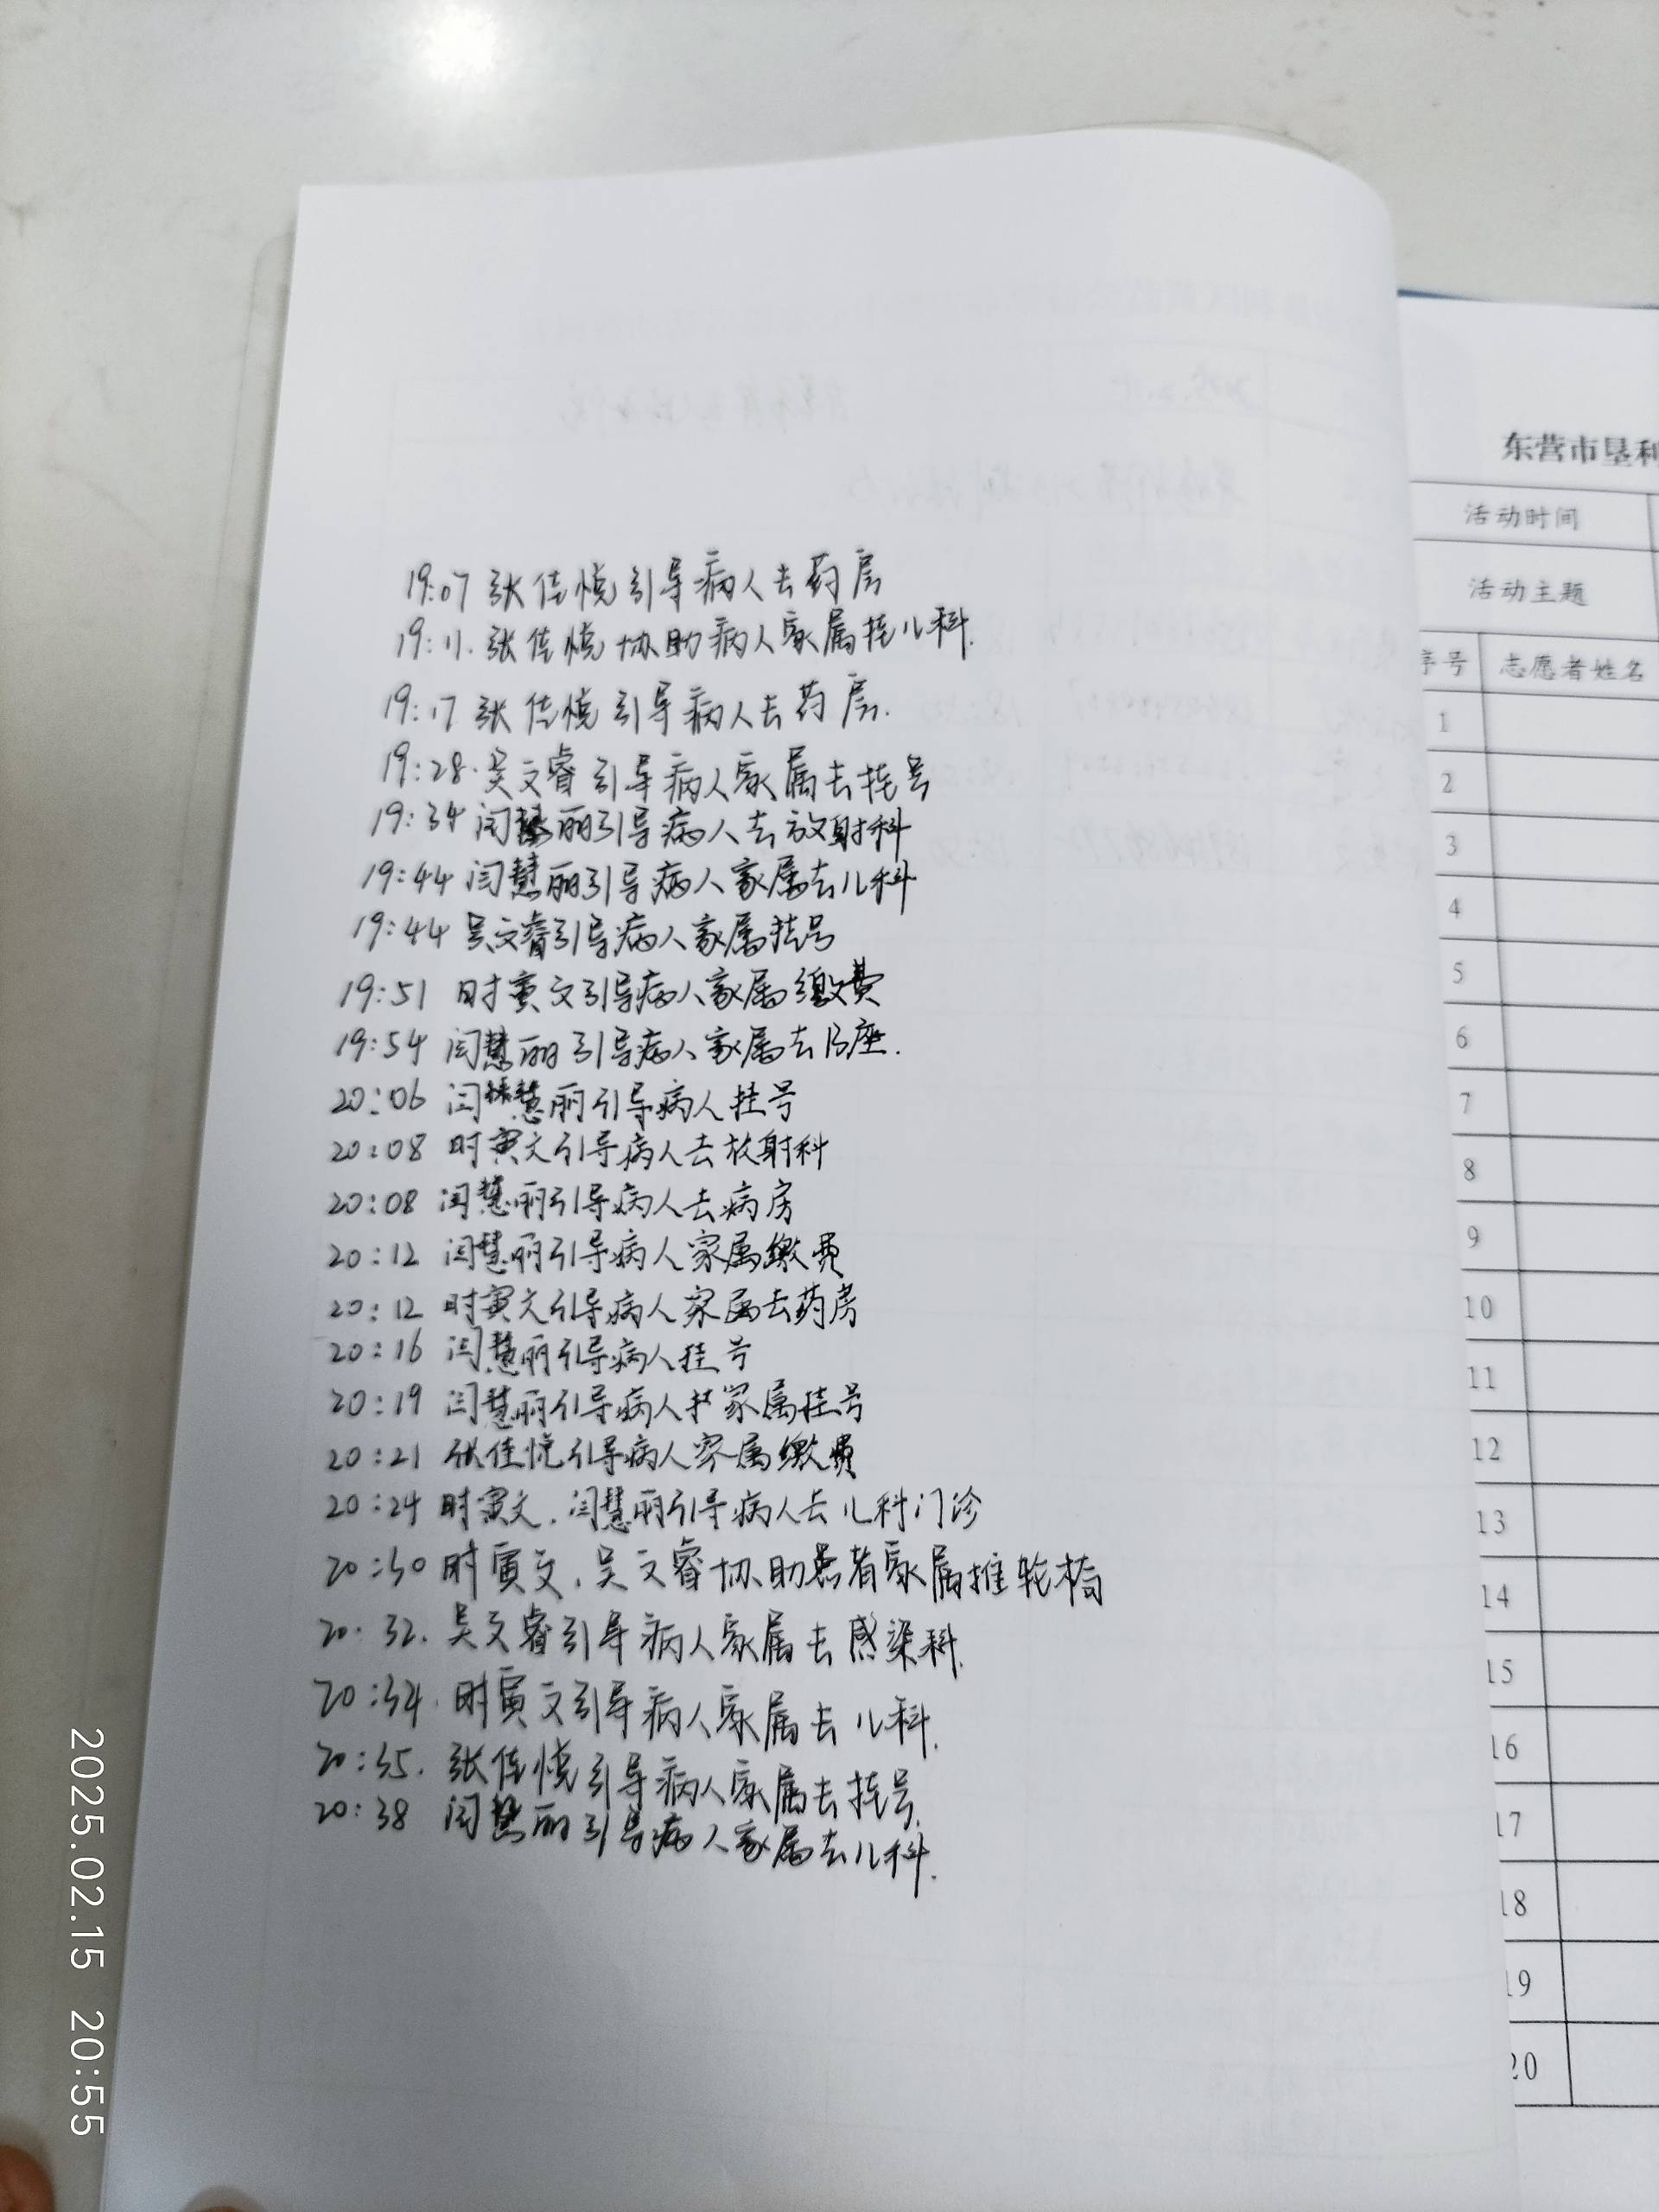 19:07 张佳悦引导病人去药房
19:11. 张佳悦协助病人家属挂儿科.
19:17 张佳悦引导病人去药房.
19:28. 吴文睿引导病人家属去挂号
19:34 闫慧丽引导病人去放射科
19:44 闫慧丽引导病人家属去儿科
19:44 吴文睿引导病人家属挂号
19:51 时寅文引导病人家属缴费
19:54 闫慧丽引导病人家属去B座.
20:06 闫慧丽引导病人挂号
20:08 时寅文引导病人去放射科
20:08 闫慧丽引导病人去病房
20:12 闫慧丽引导病人家属缴费
20:12 时寅文引导病人家属去药房
20:16 闫慧丽引导病人挂号
20:19 闫慧丽引导病人家属挂号
20:21 张佳悦引导病人家属缴费
20:24 时寅文.闫慧丽引导病人去儿科门诊
20:30 时寅文.吴文睿协助患者家属推轮椅
20:32. 吴文睿引导病人家属去感染科.
20:34. 时寅文引导病人家属去儿科.
20:35. 张佳悦引导病人家属去挂号.
20:38 闫慧丽引导病人家属去儿科.
东营市垦利
活动时间
活动主题
序号 志愿者姓名
1
2
3
4
5
6
7
8
9
10
11
12
13
14
15
16
17
18
19
20
2025.02.15 20:55